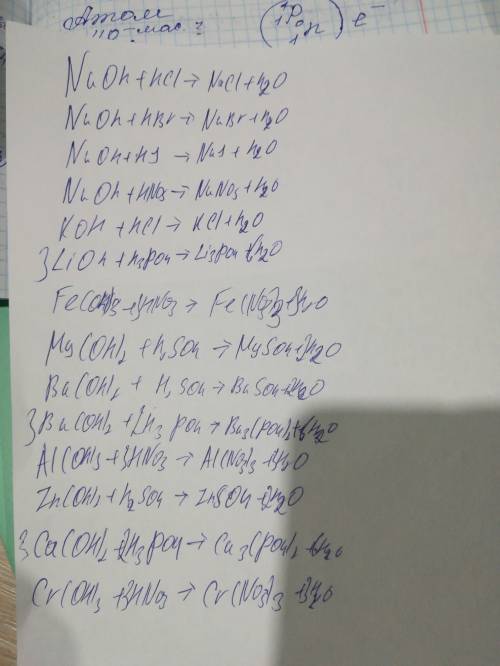 Атом
NaOh + HCl → NaCl + h2O
NaOh + hBr → NaBr + h2O
NaOh + HJ → NaJ + h2O
NaOh + HNO3 → NaNO3 + h2O
KOH + HCl → KCl + h2O
3LiOh + h3po4 → Li3po4 + 3h2O
Fe(OH)3 + 3HNO3 → Fe(NO3)3 + 3h2O
Mg(OH)2 + h2SO4 → MgSO4 + 2h2O
Ba(OH)2 + H2SO4 → BaSO4 + 2h2O
3Ba(OH)2 + 2h3po4 → Ba3(po4)2 + 6h2O
Al(OH)3 + 3HNO3 → Al(NO3)3 + 3h2O
Zn(OH)2 + h2SO4 → ZnSO4 + 2h2O
3Ca(OH)2 + 2H3po4 → Ca3(po4)2 + 6h2o
Cr(OH)3 + 3HNO3 → Cr(NO3)3 + 3h2o